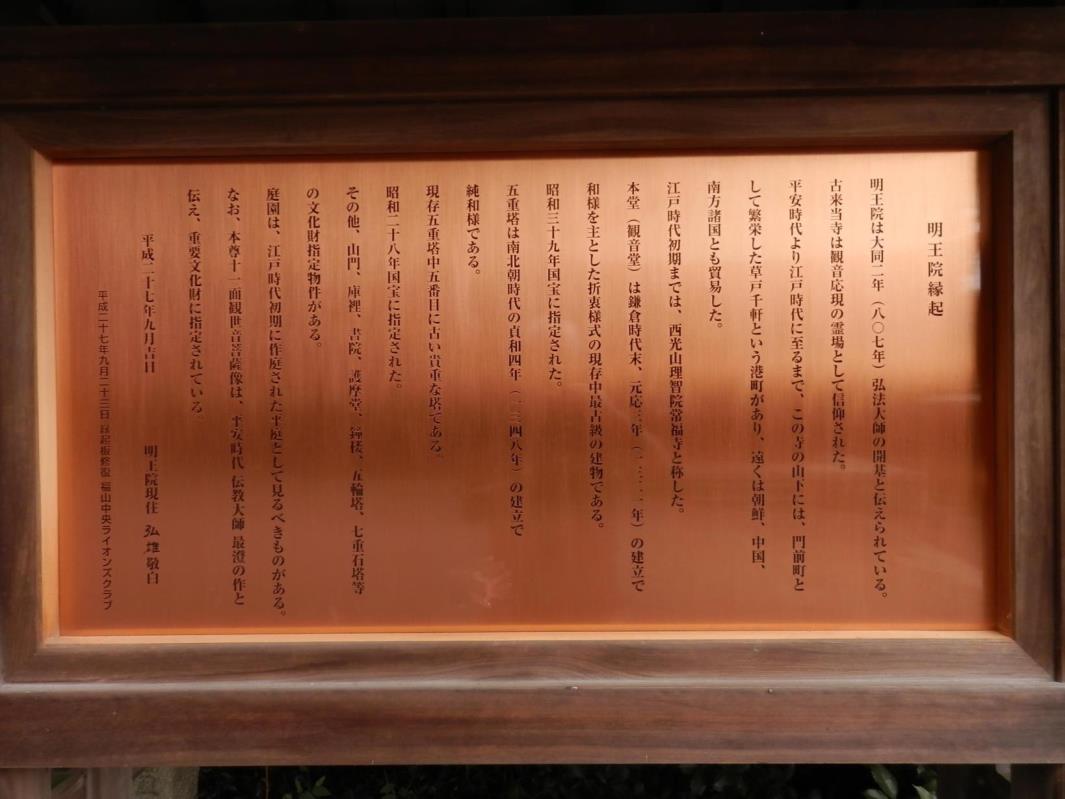 明王院縁起
明王院は大同二年（八〇七年）弘法大師の開基と伝えられている。
古来当寺は観音応現の霊場として信仰された。
平安時代より江戸時代に至るまで、この寺の山下には、門前町と
して繁栄した草戸千軒という港町があり、遠くは朝鮮、中国、
南方諸国とも貿易した。
江戸時代初期までは、西光山理智院常福寺と称した。
本堂（観音堂）は鎌倉時代末、元応三年（一三二一年）の建立で
和様を主とした折衷様式の現存中最古級の建物である。
昭和三十九年国宝に指定された。
五重塔は南北朝時代の貞和四年（一三四八年）の建立で
純和様である。
現存五重塔中五番目に古い貴重な塔である。
昭和二十八年国宝に指定された。
その他、山門、庫裡、書院、護摩堂、鐘楼、五輪塔、七重石塔等
の文化財指定物件がある。
庭園は、江戸時代初期に作庭された平庭として見るべきものがある。
なお、本尊十一面観世音菩薩像は、平安時代 伝教大師 最澄の作と
伝え、重要文化財に指定されている。
平成二十七年九月吉日 明王院現住 弘雄 敬白
平成二十七年九月二十三日 縁起板修復 福山中央ライオンズクラブ